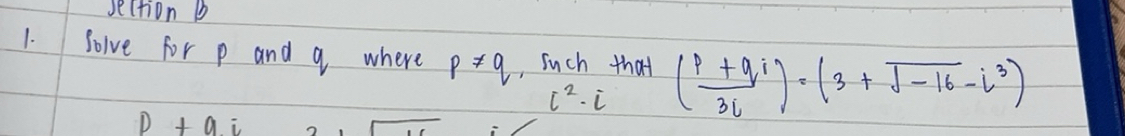 Section B
1. Solve for p and q where p ≠ q, such that (p + qi / 3i) = (3 + √-16 - i³)
i² · i
p + q i